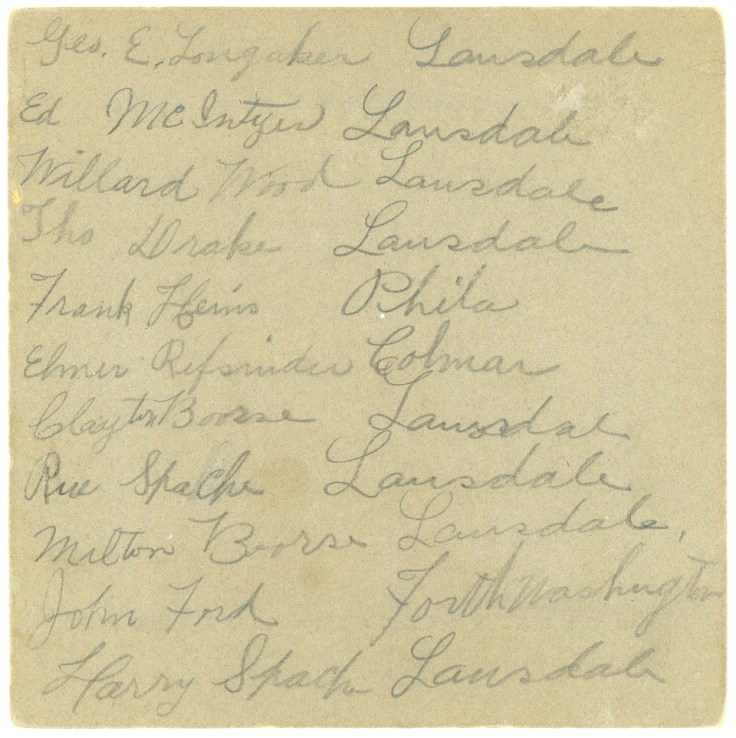 Geo. E. Longaker Lansdale
Ed McIntyer Lansdale
Willard Wood Lansdale
Tho Drake Lansdale
Frank Heins Phila
Elmer Refsnider Colmar
Clayton Boorse Lansdal
Rue Spache Lansdale
Milton Boorse Lansdale.
John Ford Forth Washington
Harry Spach Lansdale